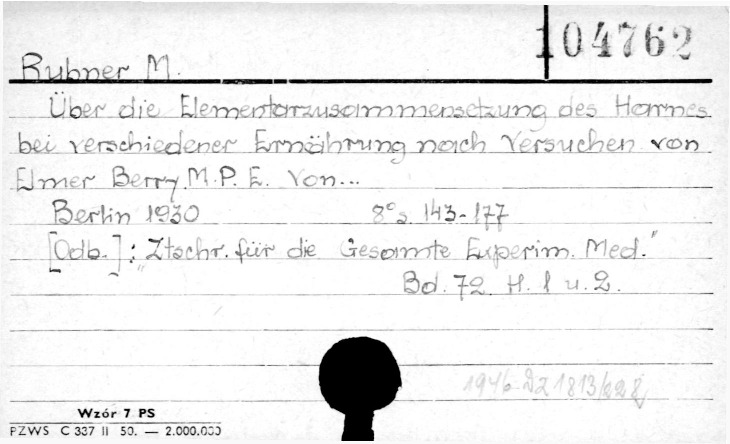 104762
Rubner M.
Über die Elementarzusammensetzung des Harnes
bei verschiedener Ernährung nach Versuchen von
Elmer Berry, M.P.E. Von...
Berlin 1930 8° s. 143-177
[Odb.]: "Ztschr. für die Gesamte Experim. Med."
Bd. 72. H. 1 u. 2.
1946 Dz 1813/
Wzór 7 PS
PZWS C 337 II 50. — 2.000.000